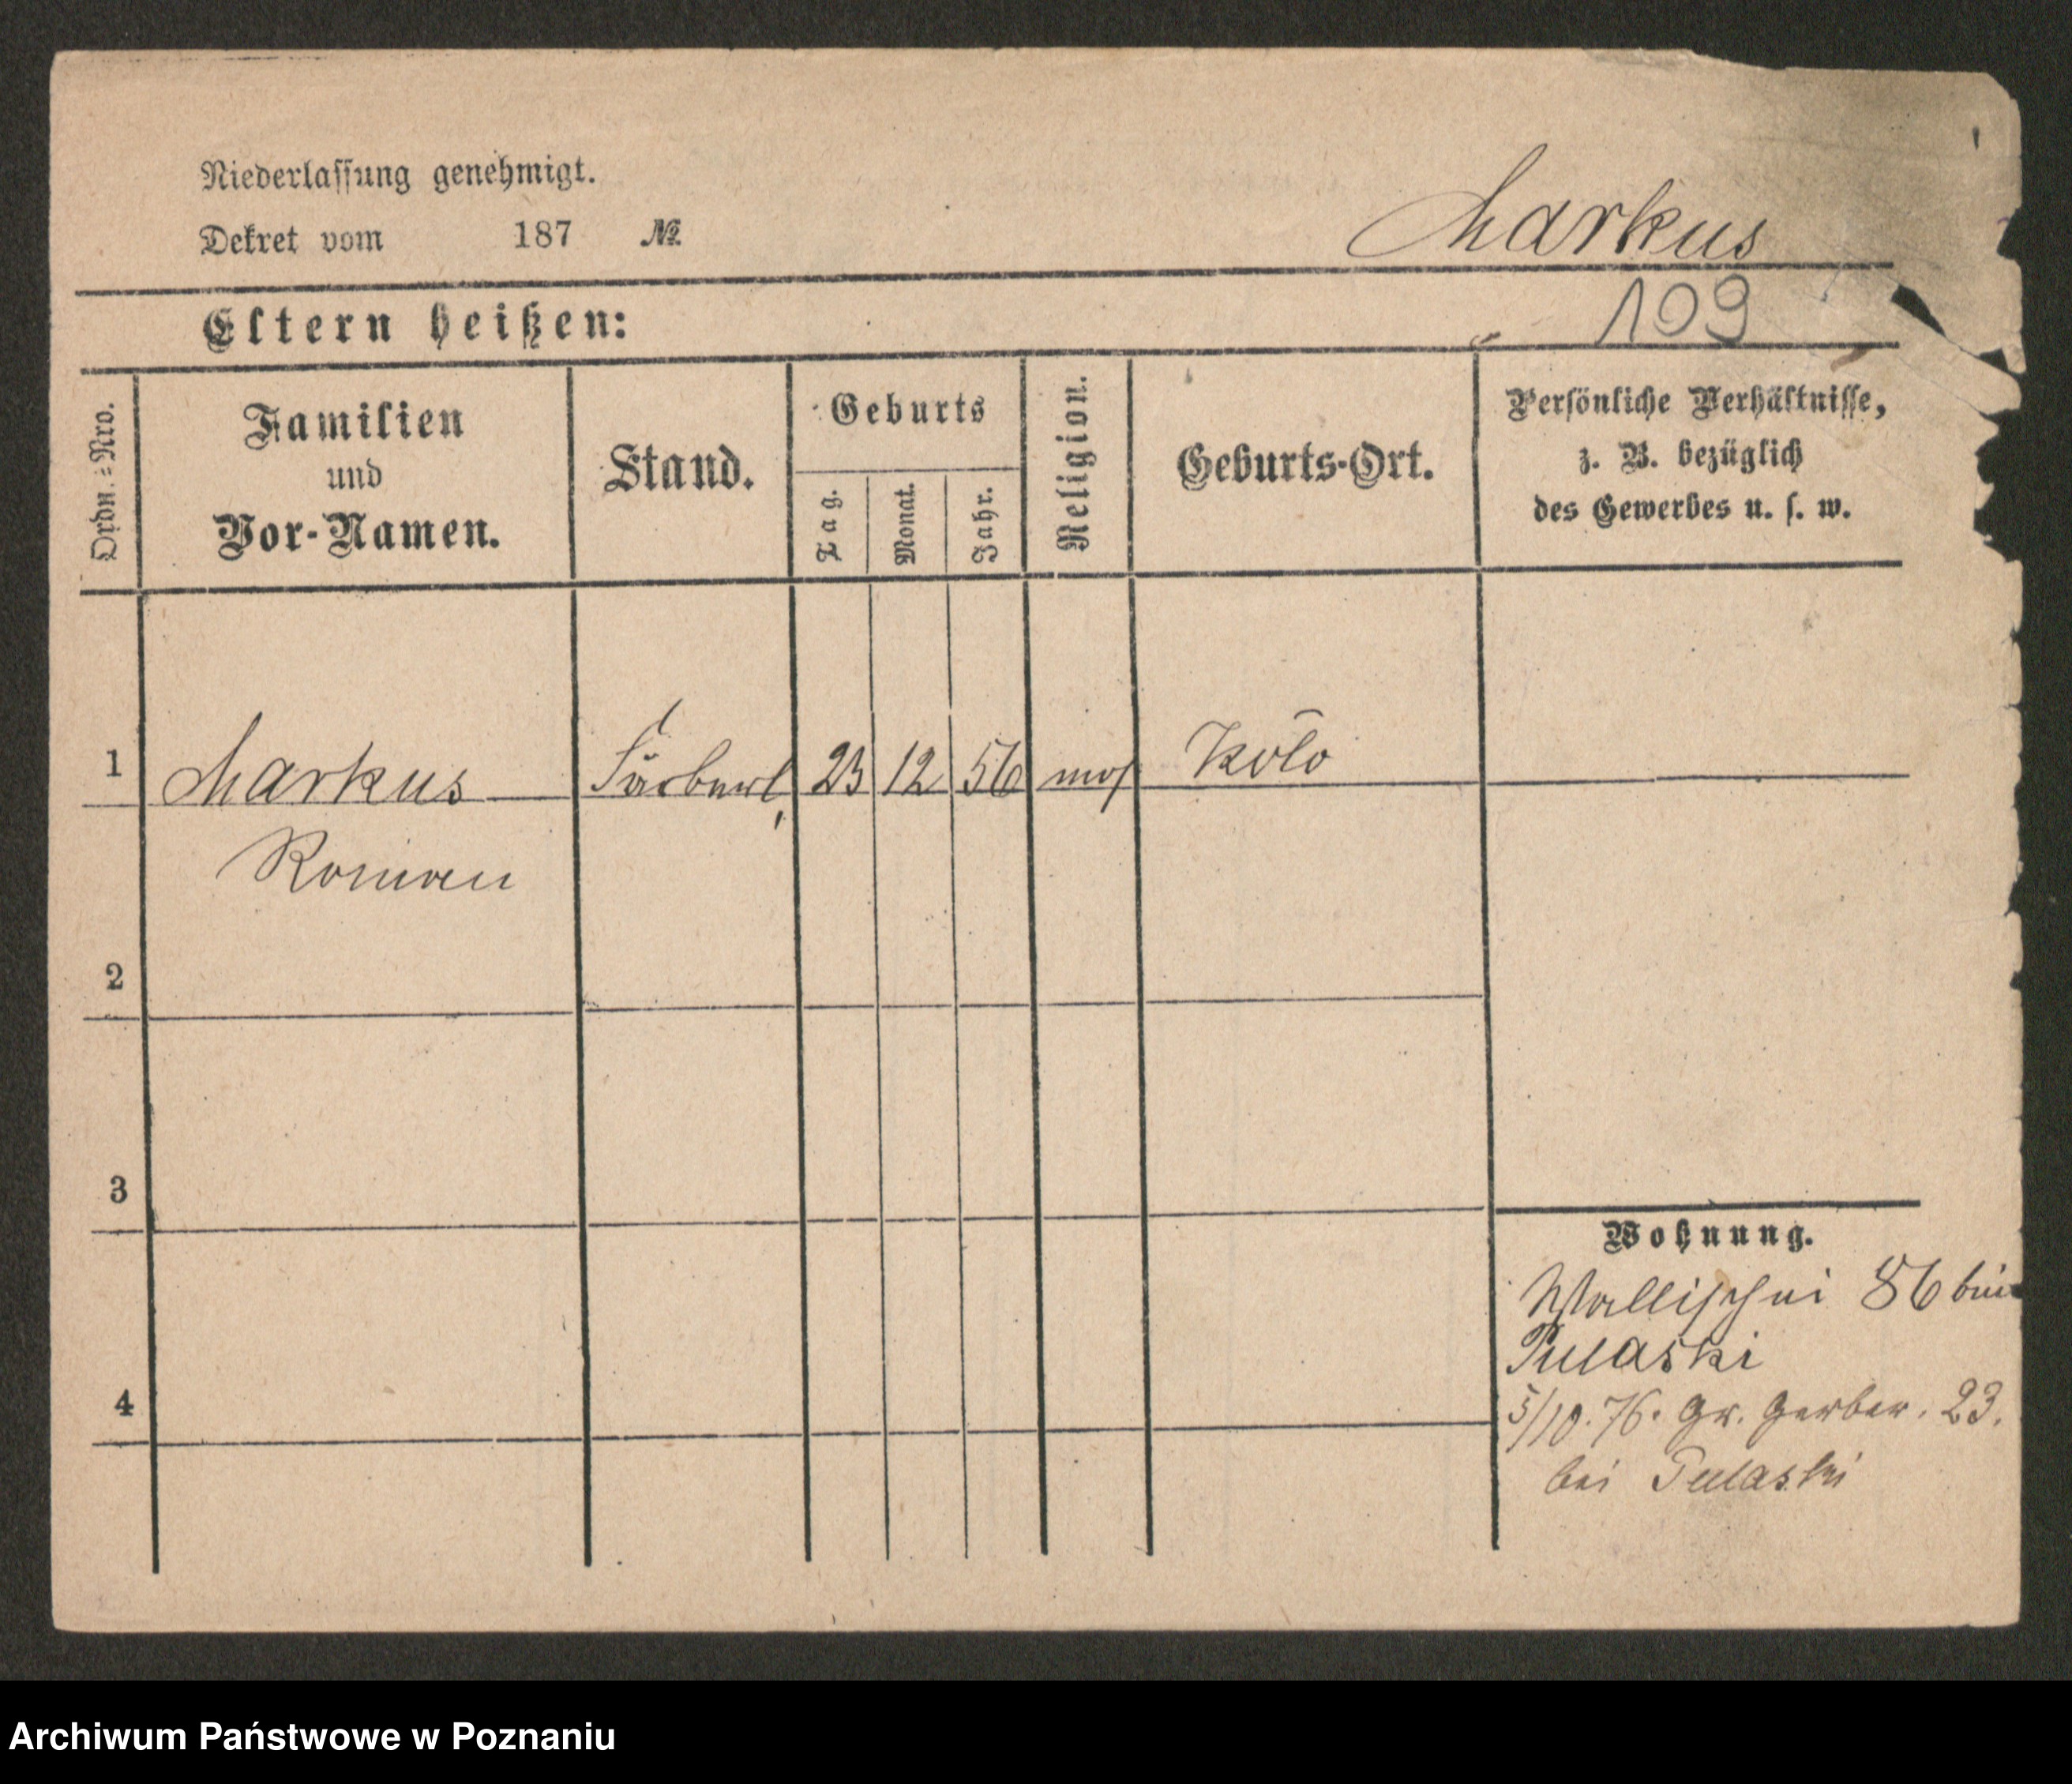 Niederlassung genehmigt.
Dekret vom 187 №
Markus
109
Eltern heißen:
Ordn.=Nro.
Familien
und
Vor-Namen.
Stand.
Geburts
Tag.
Monat.
Jahr.
Religion.
Geburts-Ort.
Persönliche Verhältnisse,
z. B. bezüglich
des Gewerbes u. s. w.
1 Markus 23 12 56 mos Kolo
Roman
2
3
4
Wohnung.
Wallischei 86 bei
Pulaski
5/10. 76. Gr. Gerber. 23.
bei Pulaski
Archiwum Państwowe w Poznaniu